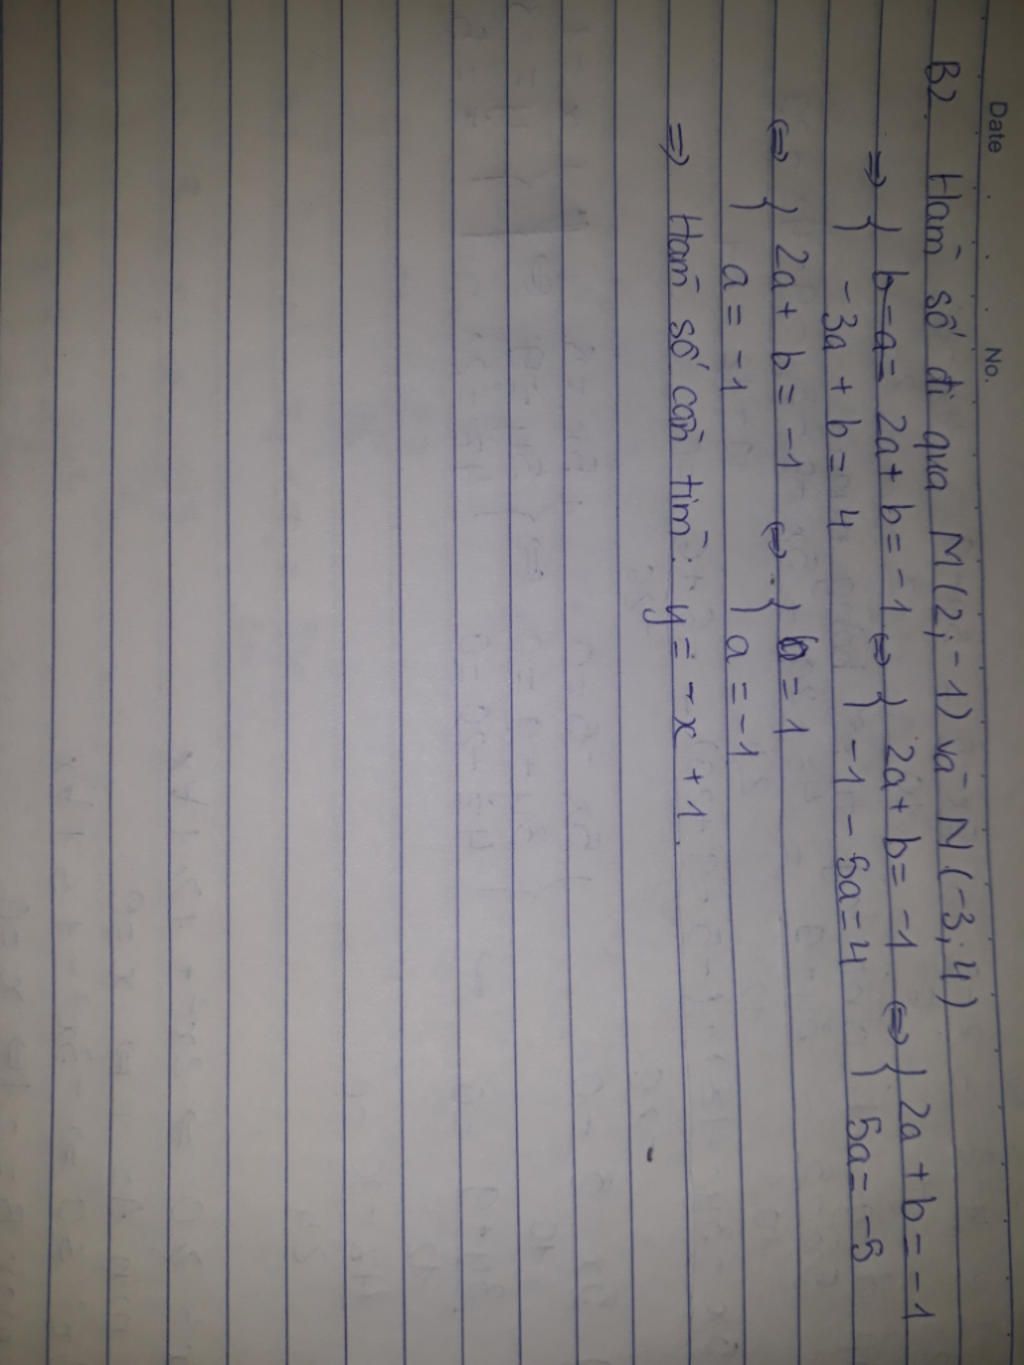 Date No.
B2. Hàm số đi qua M(2; -1) và N(-3; 4)
=> { b-a= 2a+ b= -1 <=> { 2a+ b= -1 <=> { 2a + b= -1
-3a + b= 4 -1 - 5a=4 5a= -5
<=> { 2a+ b= -1 <=> { b=1
a= -1 a= -1
=> Hàm số cần tìm: y= -x +1.